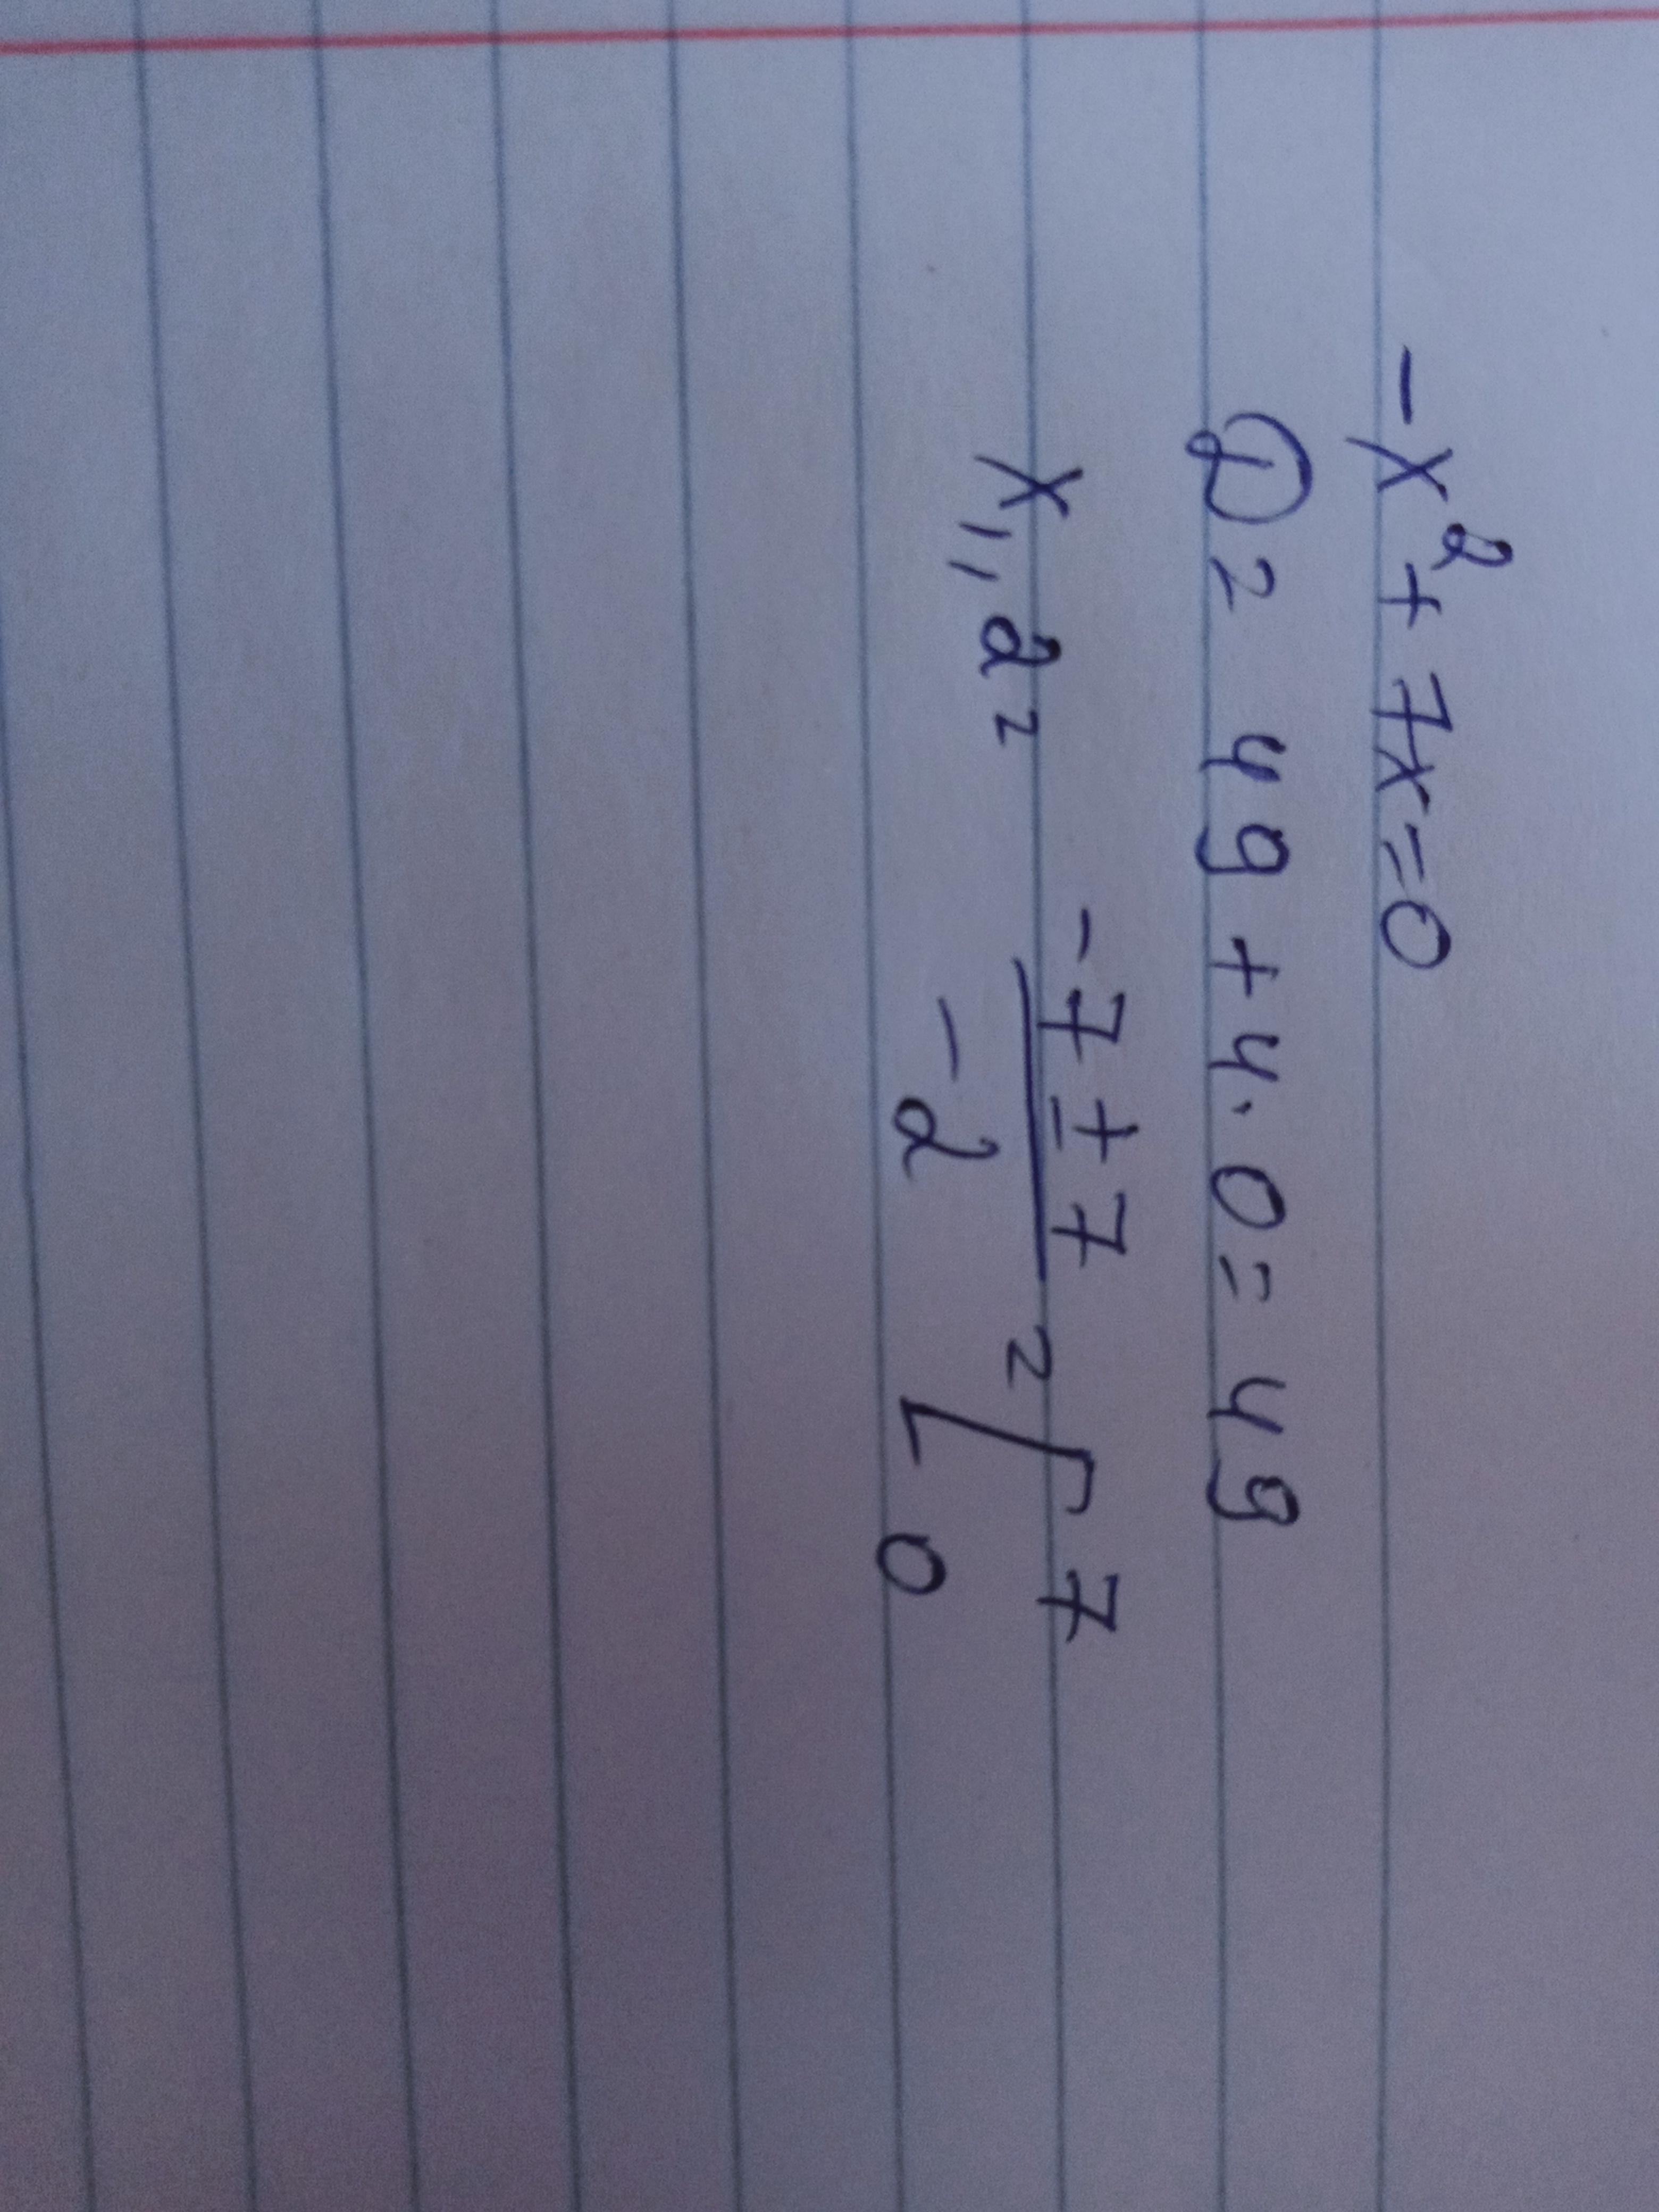 -x² + 7x = 0
D = 49 + 4 · 0 = 49
x₁,₂ = (-7 ± 7) / -2 = [ 7
0